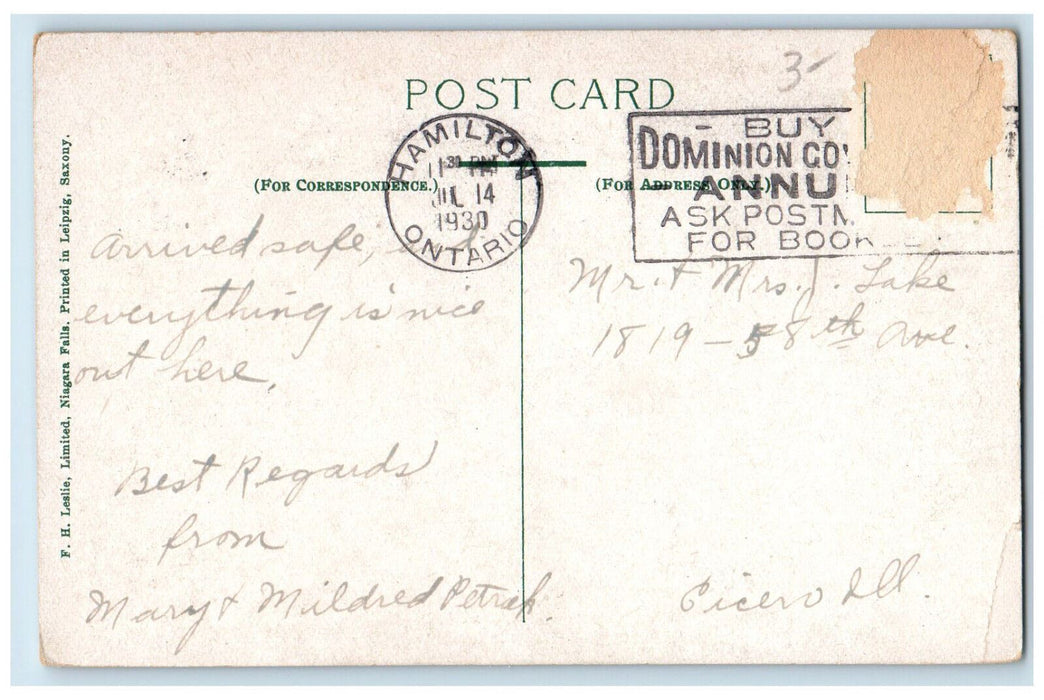 3-
POST CARD
HAMILTON
11 30 PM
JUL 14
1930
ONTARIO
- BUY
DOMINION GOV
ANNU
ASK POSTM
FOR BOOKLET
(FOR CORRESPONDENCE.)
(FOR ADDRESS ONLY.)
arrived safe,
everything is nice
out here.
Best Regards
from
Mary & Mildred Petrak.
Mr. & Mrs. J. Lake
1819 - 58th Ave.
Cicero Ill.
F. H. Leslie, Limited, Niagara Falls. Printed in Leipzig, Saxony.